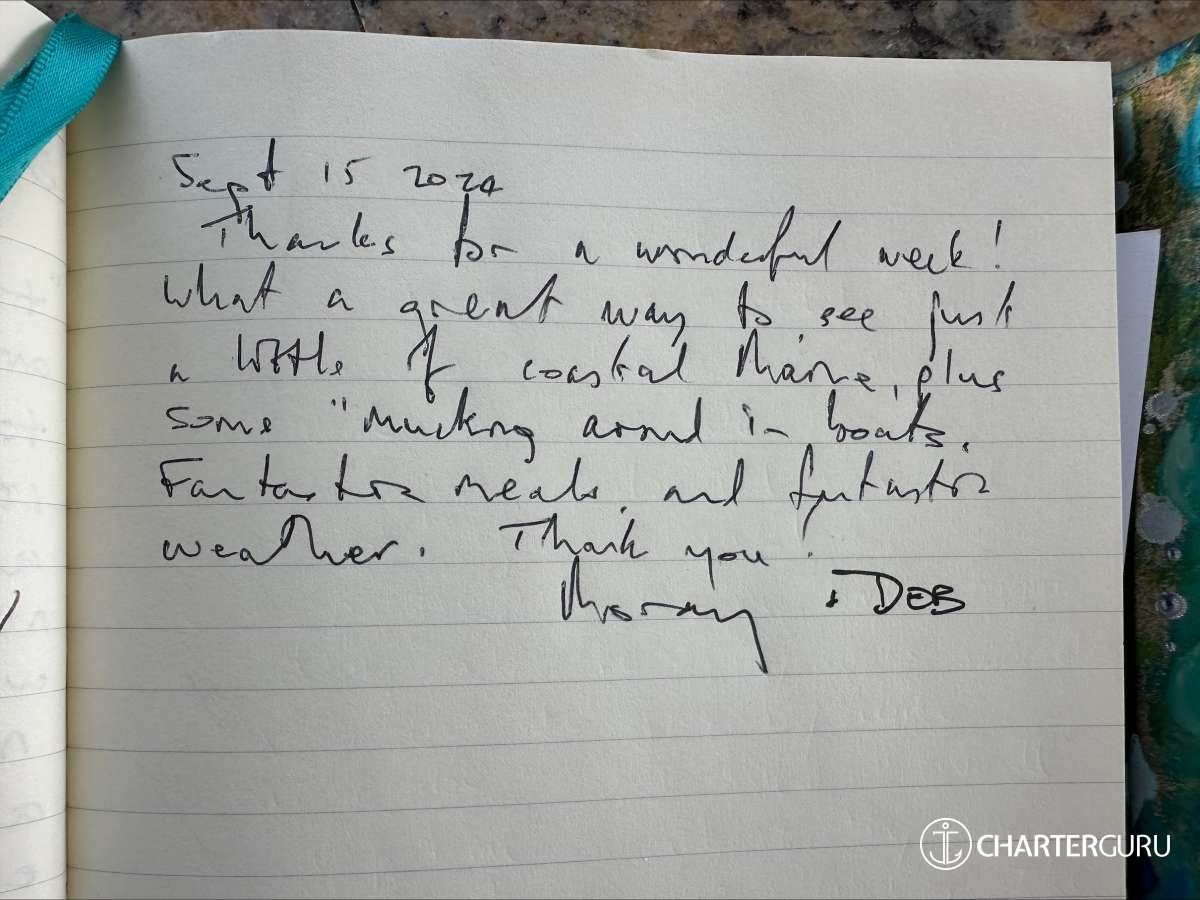 Sept 15 2024
Thanks for a wonderful week!
What a great way to see just
a little of coastal Maine, plus
some "mucking around in boats.
Fantastic meals, and fantastic
weather. Thank you!
+ DEB
CHARTERGURU